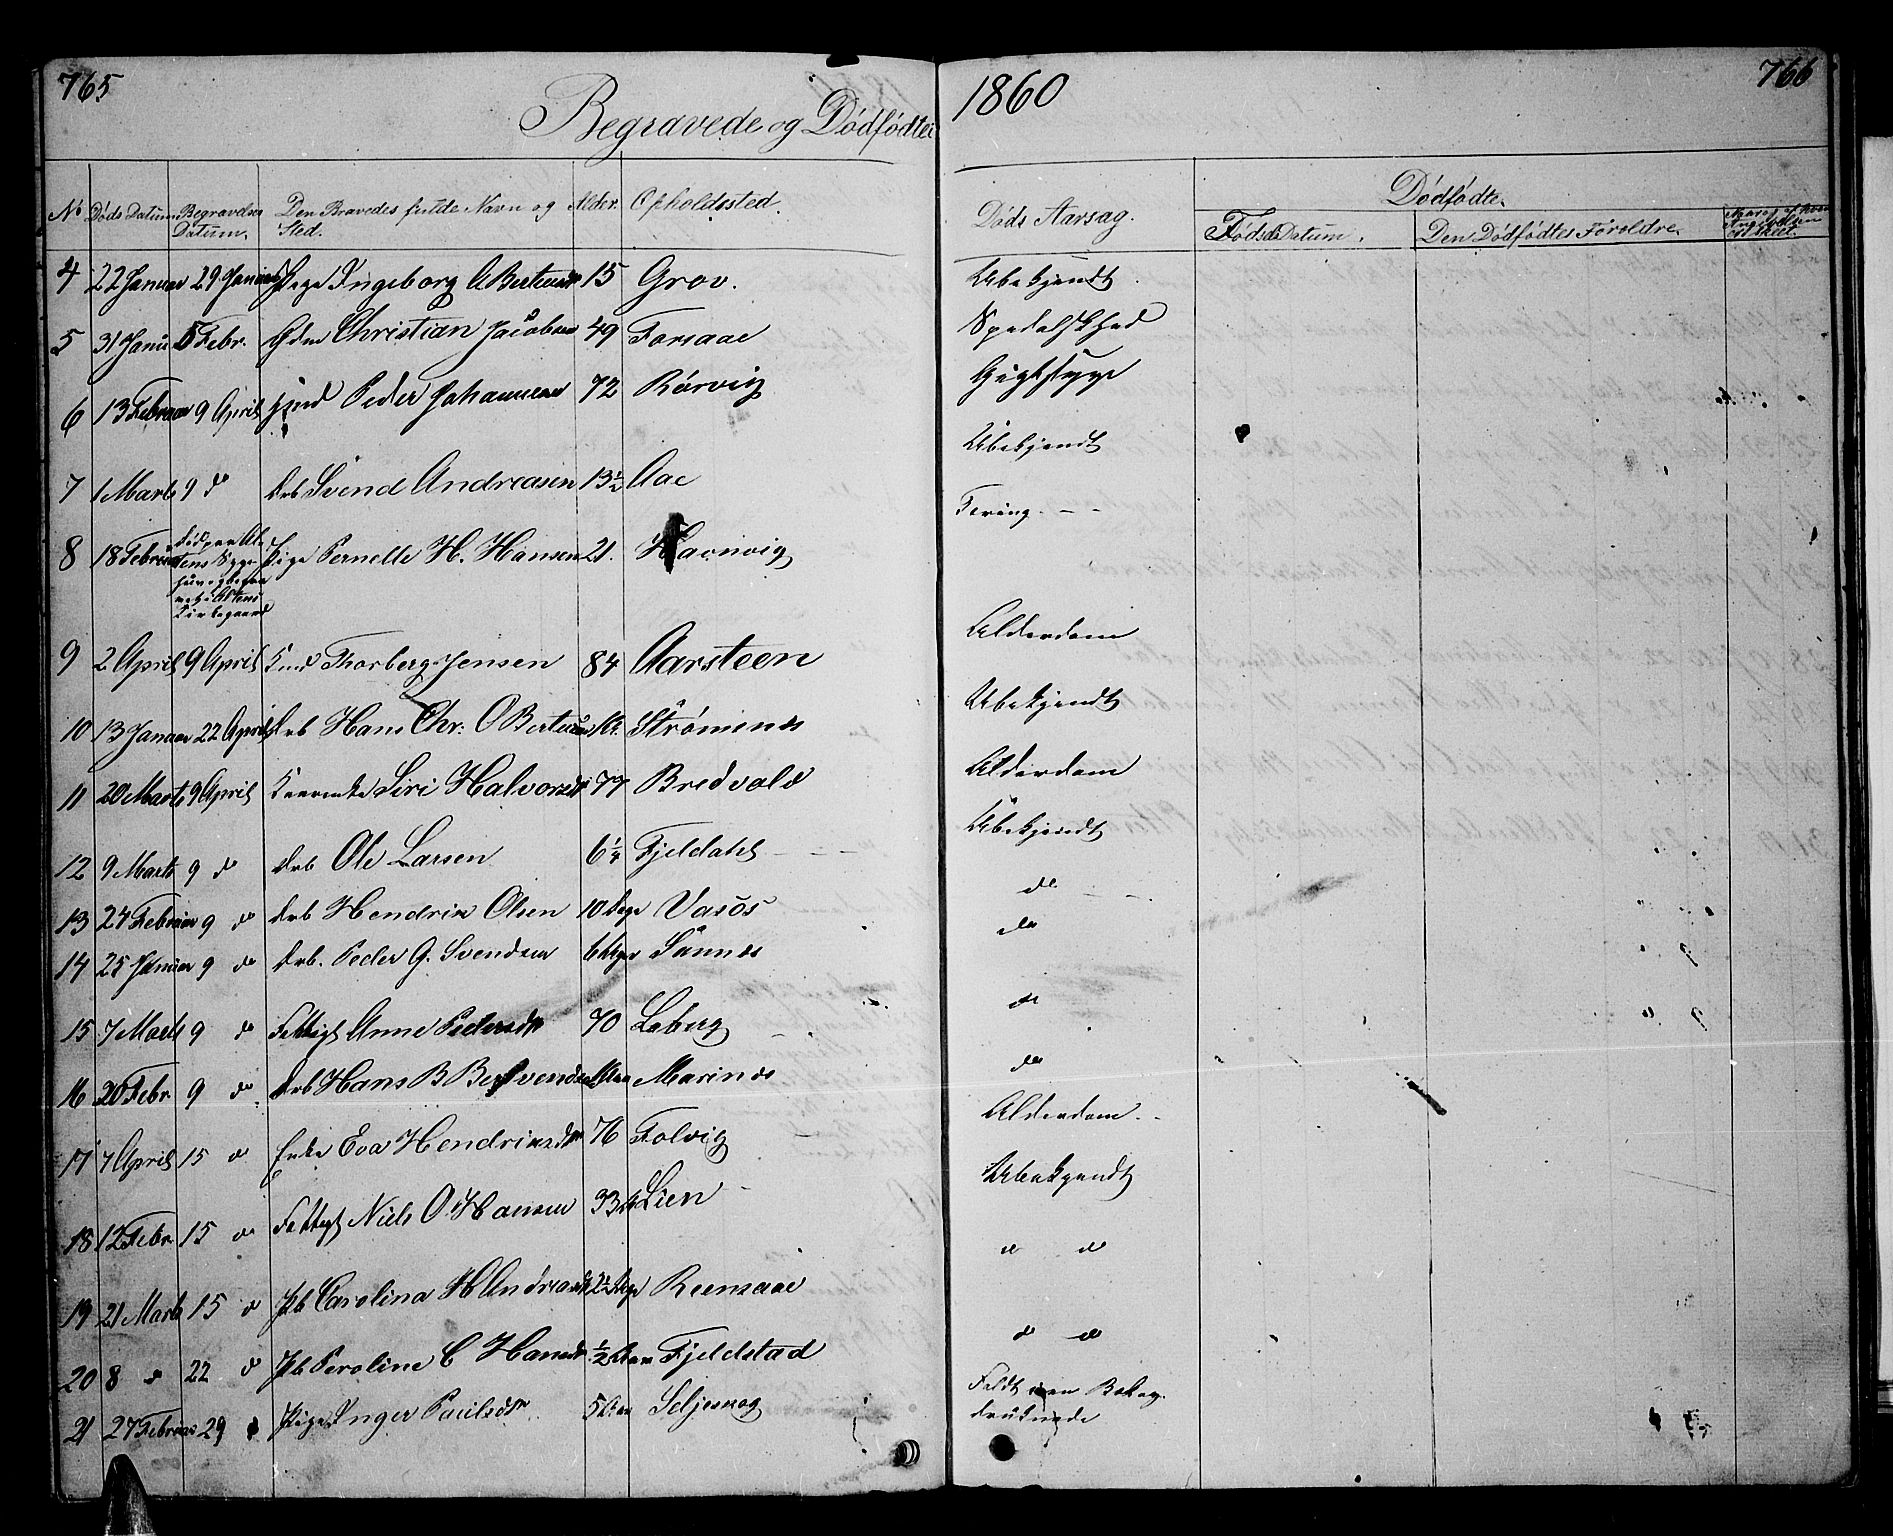 765
Begravede og Dødfødte
1860
766
No Døds Datum Begravelses Datum. Den Bravedes fulde Navn og Sted. Alder. Opholdssted. Døds Aarsag. Dødfødte.
Fødsels Datum. Den Dødfødtes Foreldre.
4 22 Januar 29 Januar Pige Ingeborg A Bertheusdr 15 Grov. Ubekjendt.
5 31 Janu 5 Febr. Gdm Christian Jacobsen 49 Forsaae Spedalskhed
6 13 Februar 9 April Peder Johannesen 72 Rørvig Gigtsyge
7 1 Marts 9 do Drb Svend Andreasen 13½ Aae Ubekjendt
8 18 Februar død paa Altens Sygehuus begravet i Altens Kirkegaard Pige Pernelle H. Hansen 21. Havnvig Tæring - -
9 2 April 9 April Thorberg Jensen 84 Aarsteen Alderdom
10 13 Januar 22 April Drb Hans Chr: O Bertheusen Strømnæs Ubekjendt
11 20 Marts 9 April Siri Halvorsdr 77 Bredvold Alderdom
12 9 Marts 9 do Drb Ole Larsen 6¼ Fjeldahl Ubekjendt
13 24 Februar 9 do Drb Hendrik Olsen 10 Dage Vasøs do
14 25 Januar 9 do Drb. Peder G. Svendsen 6 Sannæs do
15 7 Marts 9 do Fattigl Anne Pedersdr 70 Laberg do
16 20 Febr 9 do Drb Hans B Marinæs do
17 7 April 15 do Enke Eva Hendriksdr 76 Folvig Alderdom
18 12 Febr. 15 do Fattigl Niels O Hansen 33 Lien Ubekjendt
19 21 Marts 15 do Pb Carolina H Andreasdr 2½ Dage Reensaae do do
20 8 do 22 do Pb Peroline C Hansdr ½ Aar Fjeldstad do do
21 27 Februar 29 Pige Inger Paulsdr 5 Aar Seljeskog Faldt i en Bæk og druknede